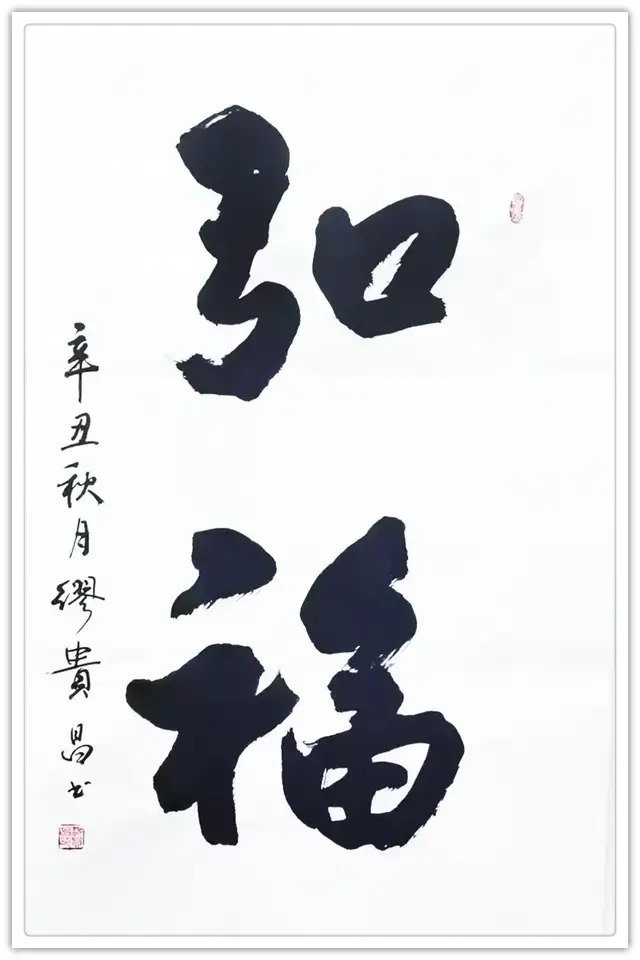 弘福
辛丑秋月繆貴昌书